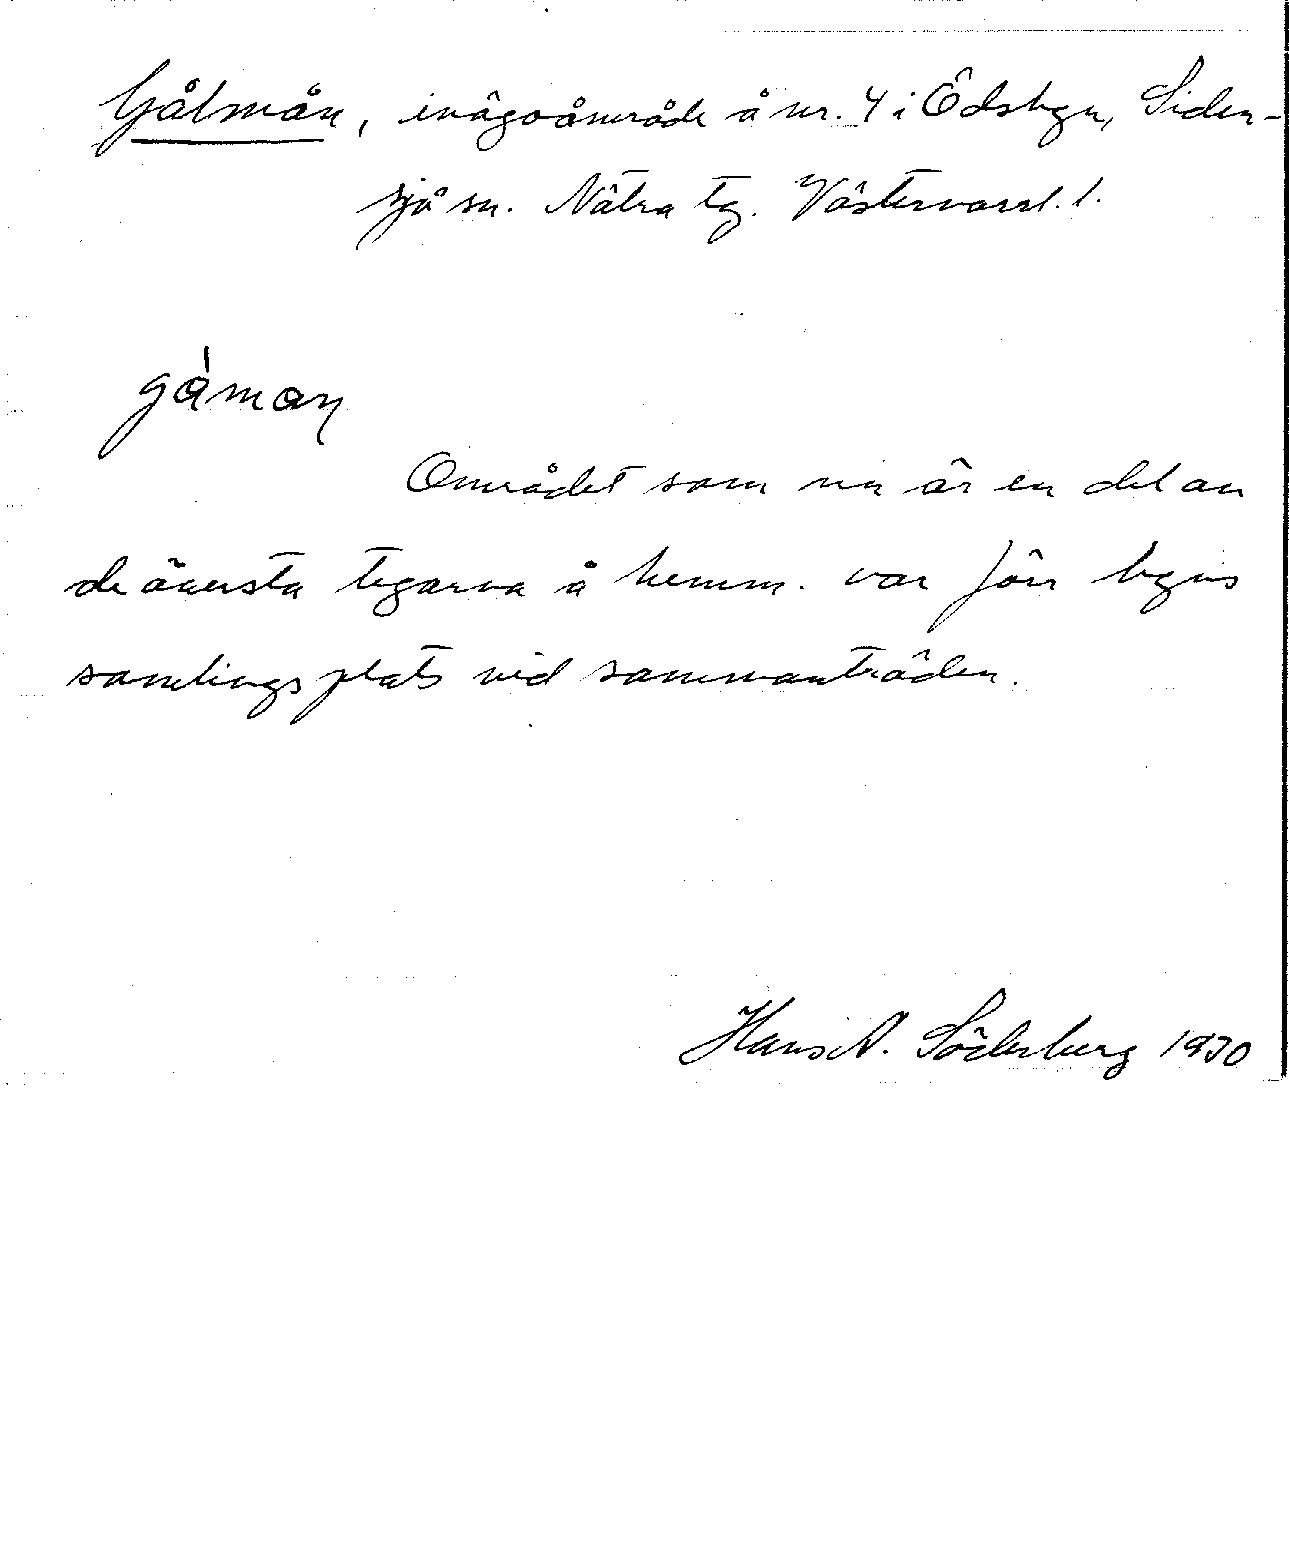 Gålmån, inägoområde å nr. 4 i Ödsbyn, Siden-
sjö sn. Nätra tg. Västernorrl. l.
gåman
Området som nu är en del av
de översta tegarna å hemm. var förr byns
samlingsplats vid sammanträden.
Hans A. Söderberg 1930